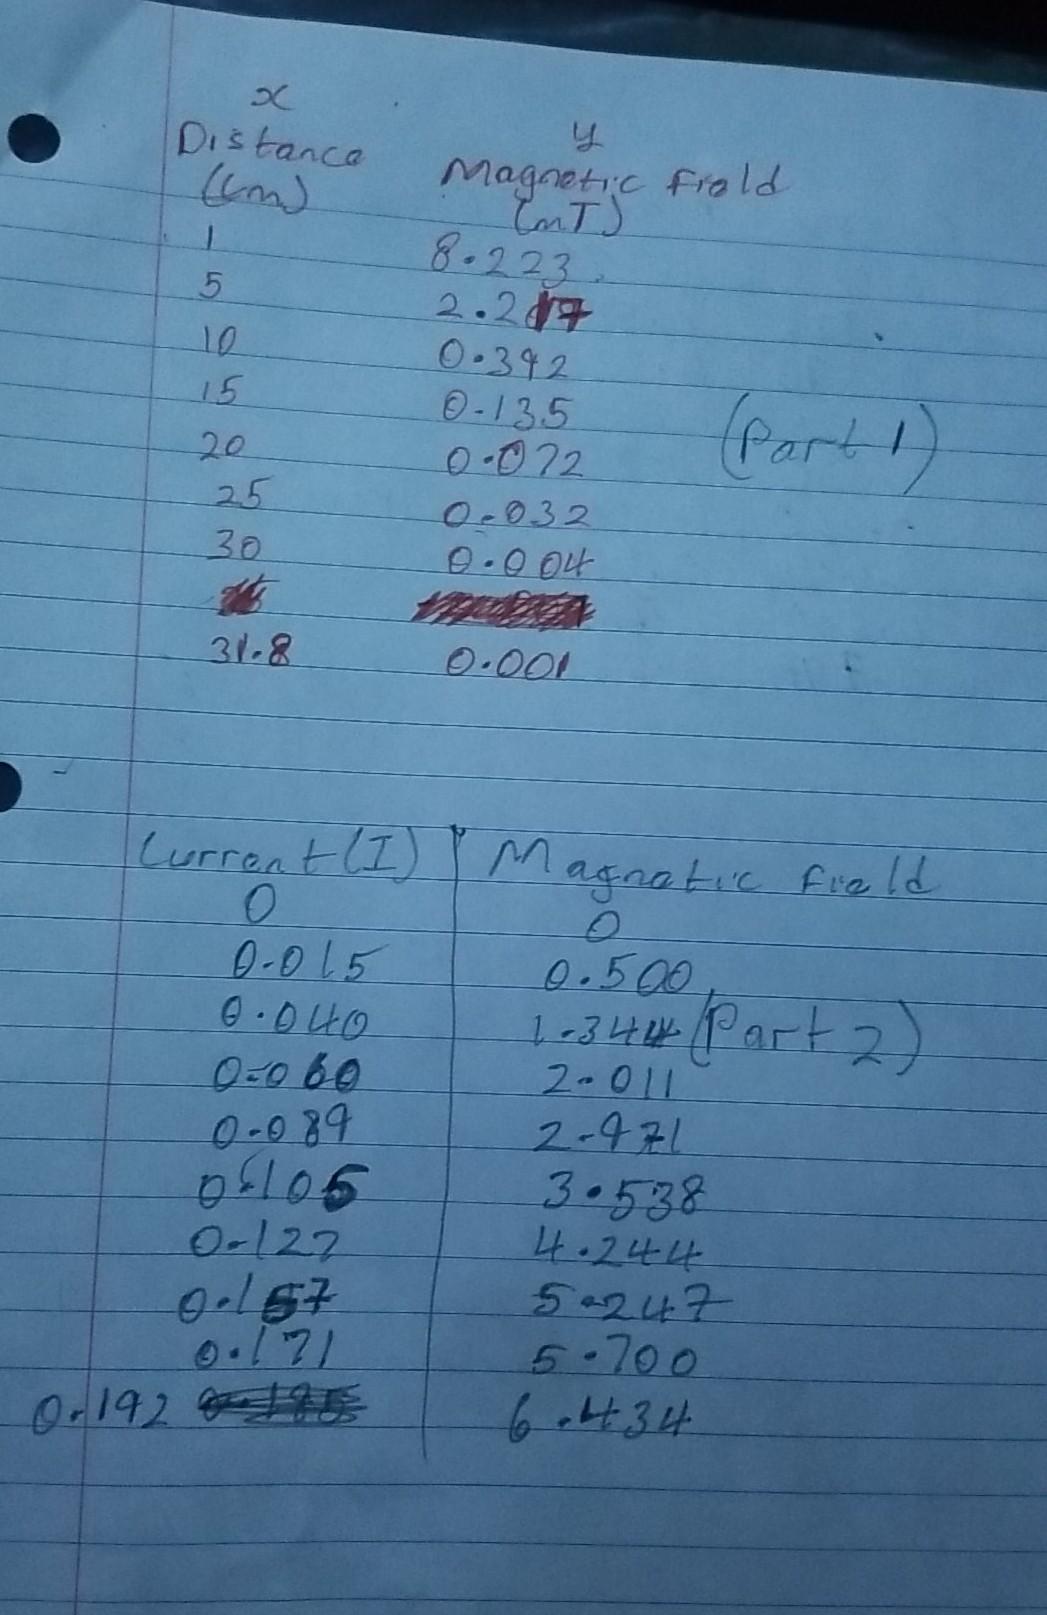 x y
Distance Magnetic Field
(cm) (mT)
1 8.223
5 2.217
10 0.392
15 0.135
(Part 1)
20 0.072
25 0.032
30 0.004
31.8 0.001
Current (I) Magnetic field
0 0
0.015 0.500
0.040 1.344 (Part 2)
0.060 2.011
0.089 2.971
0.105 3.538
0.127 4.244
0.157 5.247
0.171 5.700
0.192 6.434